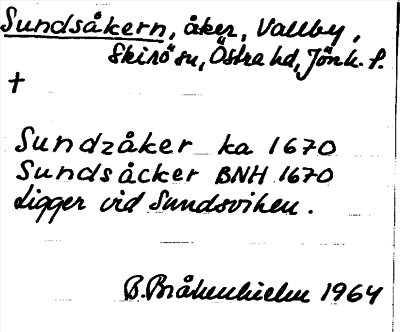 Sundsåkern, åker, Vallby,
Skirö sn, Östra hd, Jönk. l.
+
Sundzåker ka 1670
Sundsåcker BNH 1670
Ligger vid Sundsviken.
B. Bråkenhielm 1964